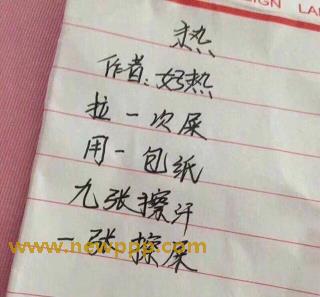 IGN LAN
热
作者:好热
拉一次屎
用一包纸
九张擦汗
一张擦屎
www.newppp.com